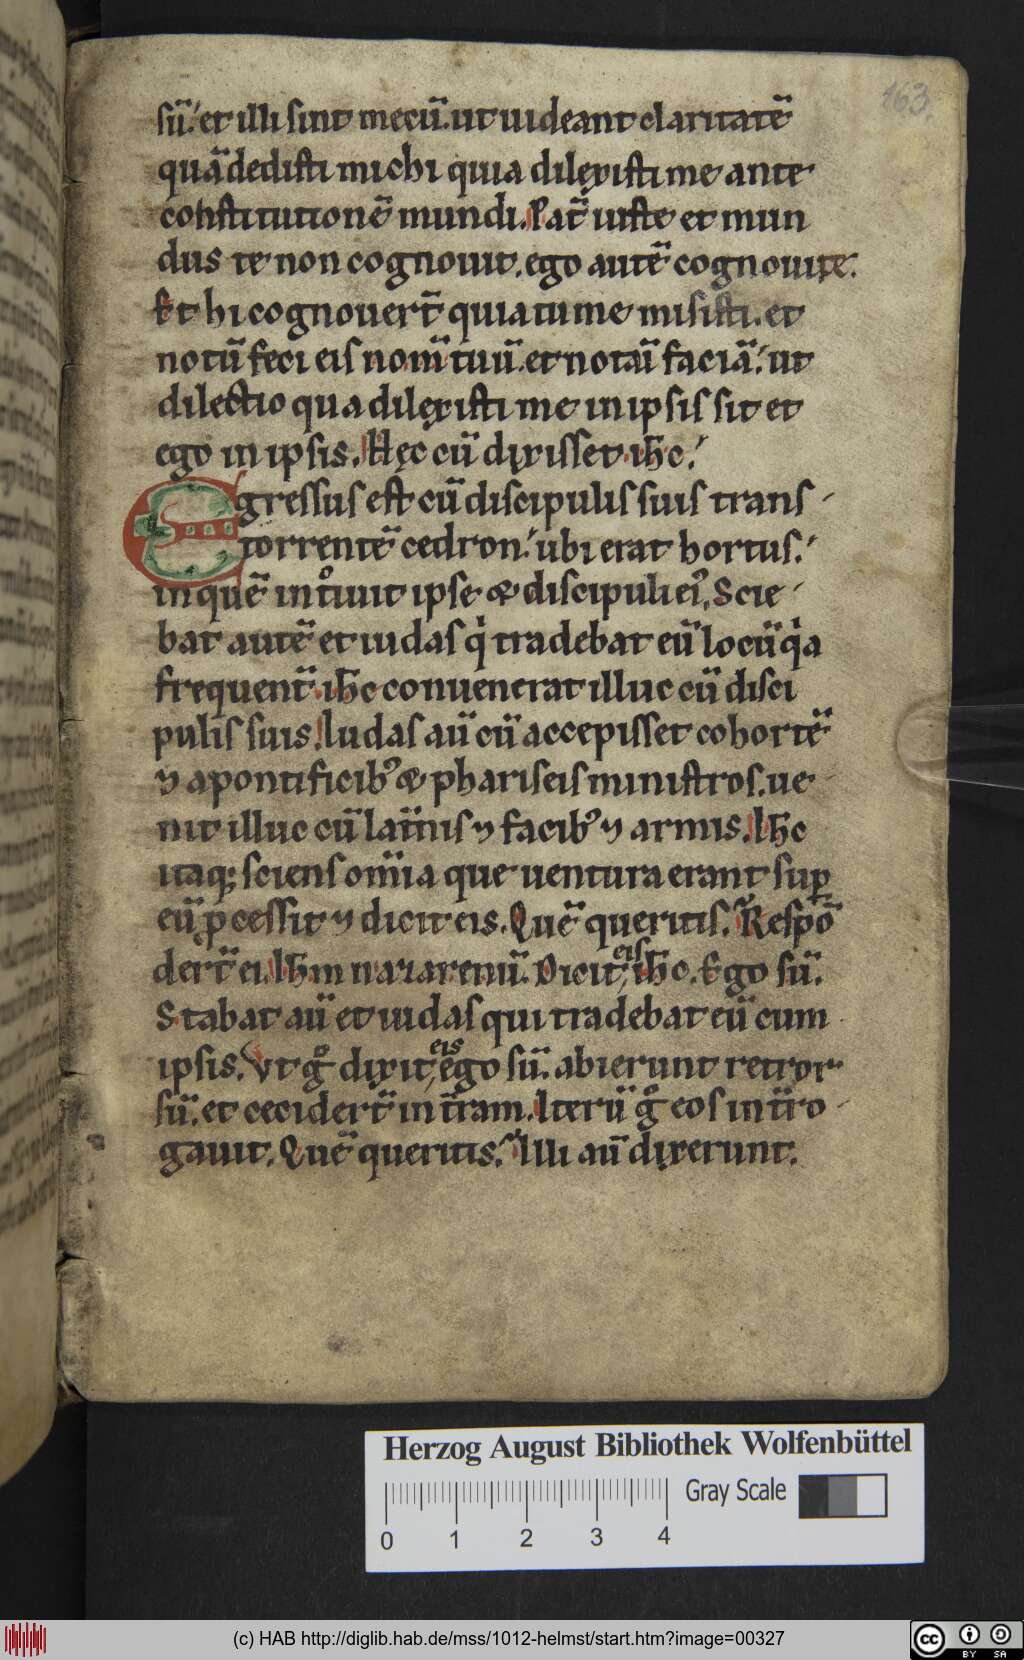 163.
sū. et illi sint mecū. ut uideant claritatē
quā dedisti michi quia dilęxisti me ante
constitutionē mundi. Pat̄ iuste et mun
dus te non cognouit. ego autē cognoui te.
Et hi cognouert̄ quia tu me misisti. et
notū feci eis nom̄ tuū. et notū faciā. ut
dilectio qua dilęxisti me in ipsis sit et
ego in ipsis. Hęc cū dixisset ihc.
Egressus est cū discipulis suis trans
torrentē cedron. ubi erat hortus.
in quē int͛oiuit ipse & discipuli ei᾽. Scie
bat autē et iudas qͥ tradebat eū locū qͥa
frequent̄ ihc conuenerat illuc cū disci
pulis suis. Iudas aū cū accepisset cohortē
⁊ a pontificib᾽ & phariseis ministros. ue
nit illuc cū lat̄nis ⁊ facib᾽ ⁊ armis. Ihc
itaq; sciens om̄ia que uentura erant sup̄
eū. pcessit ⁊ dicit eis. Quē queritis. Respō
dert̄ ei. Ihm nazarenū. Dicit eis ihc. Ego sū.
Stabat aū et iudas qui tradebat eū cum
ipsis. Vt gͦ dixit eis ego sū. abierunt retror
sū. et cecidert̄ in t̄ram. Iterū gͦ eos int̄ro
gauit. Quē queritis. Illi aū dixerunt.
Herzog August Bibliothek Wolfenbüttel
Gray Scale
0 1 2 3 4
(c) HAB http://diglib.hab.de/mss/1012-helmst/start.htm?image=00327
cc BY SA